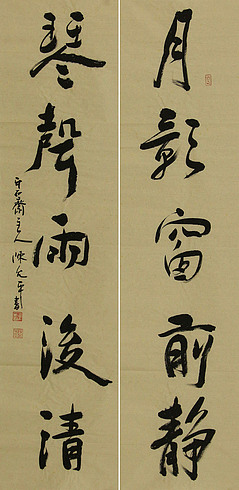 月影窗前静
琴聲雨後清
齋主人